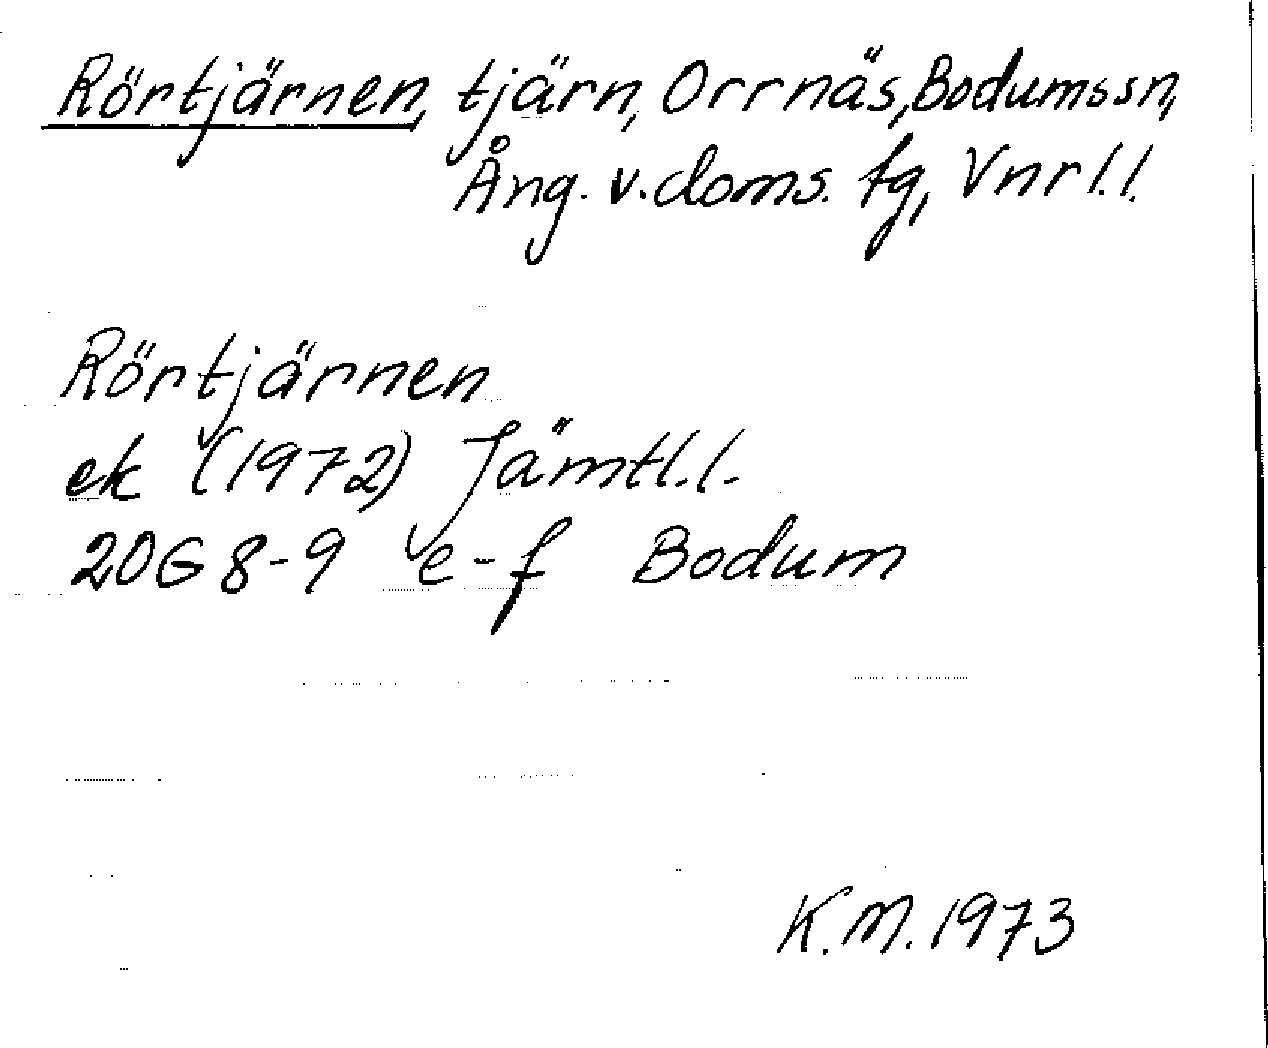 Rörtjärnen, tjärn, Orrnäs, Bodums sn,
Ång. v. doms. tg, Vnrl.l.
Rörtjärnen
ek (1972) Jämtl.l.
20G 8-9 e-f Bodum
K.M. 1973